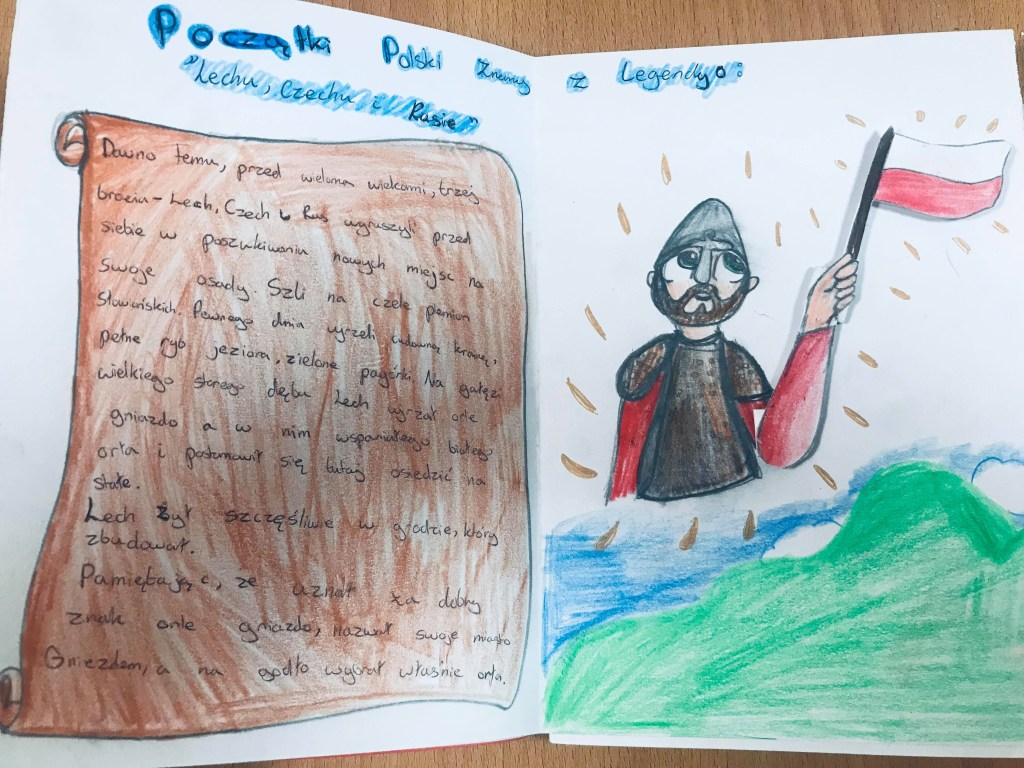 Początki Polski znamy z Legendy o:
"Lechu, Czechu i Rusie"
Dawno temu, przed wieloma wiekami, trzej
bracia - Lech, Czech i Rus wyruszyli przed
siebie w poszukiwaniu nowych miejsc na
swoje osady. Szli na czele plemion
Słowiańskich. Pewnego dnia ujrzeli cudowną krainę,
pełne ryb jeziora, zielone pagórki. Na gałęzi
wielkiego starego dębu Lech ujrzał orle
gniazdo a w nim wspaniałego białego
orła i postanowił się tutaj osiedzić na
stałe.
Lech żył szczęśliwie w grodzie, który
zbudował.
Pamiętając, ze uznał za dobry
znak orle gniazdo, nazwał swoje miasto
Gniezdem, a na godło wybrał właśnie orła.